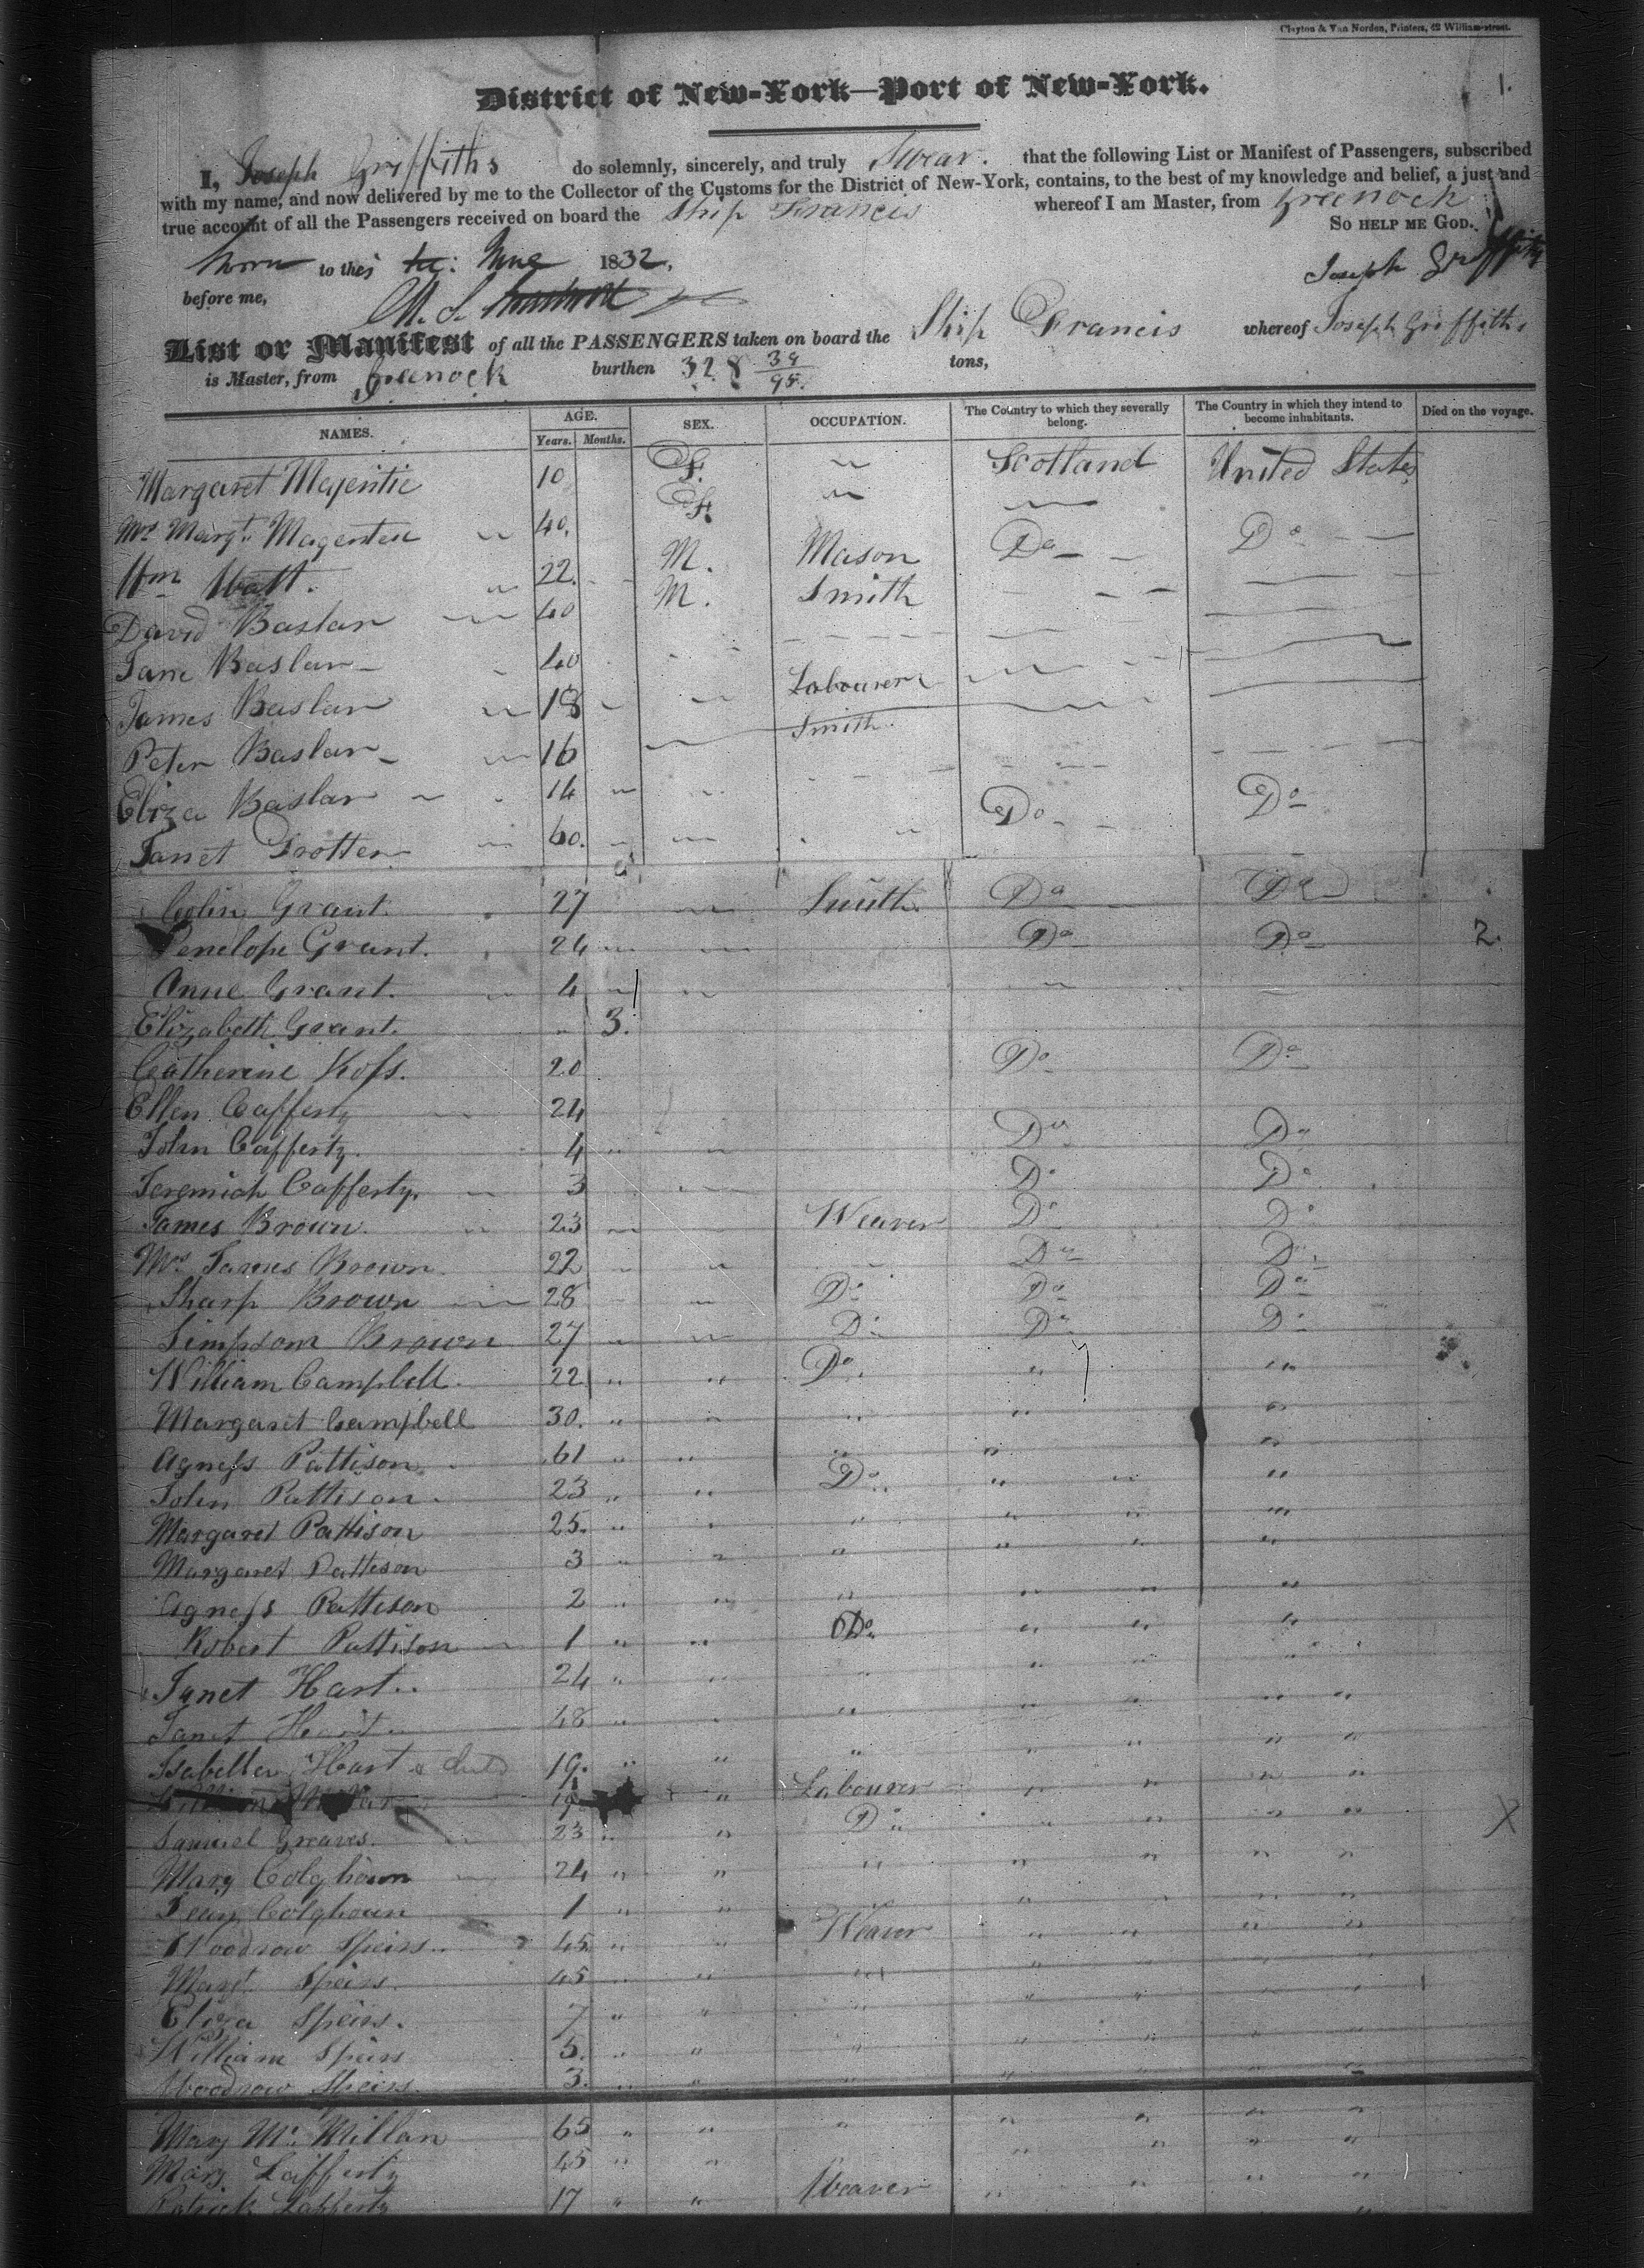 Clayton & Van Norden, Printers, 42 William-street.
1.
District of New-York—Port of New-York.
I, Joseph Griffiths do solemnly, sincerely, and truly Swear. that the following List or Manifest of Passengers, subscribed
with my name, and now delivered by me to the Collector of the Customs for the District of New-York, contains, to the best of my knowledge and belief, a just and
true account of all the Passengers received on board the Ship Francis whereof I am Master, from Greenock
So help me God.
Sworn to this June 1832,
Joseph Griffiths
before me,
List or Manifest of all the PASSENGERS taken on board the Ship Francis whereof Joseph Griffiths
is Master, from Greenock burthen 328 39/95 tons,
NAMES. AGE. Years. Months. SEX. OCCUPATION. The Country to which they severally belong. The Country in which they intend to become inhabitants. Died on the voyage.
Margaret Majentie 10 F. " Scotland United States
Mrs Margt. Magentie 40. F. "
Wm Watt. 22. M. Mason Do Do
David Baslan 40 M. Smith
Jane Baslan 40
James Baslan 18 Labourer
Peter Baslan 16 Smith
Eliza Baslan 14
Janet Trotter 60. Do Do
Colin Grant. 27 Smith Do Do
Penelope Grant. 24 Do Do 2.
Anne Grant. 4
Elizabeth Grant. " 3.
Catherine Rofs. 20 Do Do
Ellen Cafferty 24
John Cafferty. 4 " " Do Do
Jeremiah Cafferty. 3 Do Do
James Brown. 23 Weaver Do Do
Mrs James Brown. 22 " " Do Do
Sharp Brown 28 Do Do Do
Simpsom Brown 27 " " Do Do Do
William Campbell. 22 " " Do " "
Margaret Campbell 30. " " " " "
Agnefs Pattison. 61 " " " " "
John Pattison. 23 " " Do " " "
Margaret Pattison 25. " " " " " "
Margaret Pattison 3 " " " " " "
Agnefs Pattison 2 " " " " " "
Robert Pattison 1 " " Do " " "
Janet Hart. 24 " " " " " "
Janet Hart 48 " " " " " " "
Isabella Hart & child 19. " " " " " " "
19 " Labourer " " " "
Samuel Greaves. 23 " " Do " " " " X
Mary Colghoun 24 " " " " " " "
Jean Colghoun 1 " " " " " "
Woodrow Speirs. 45 " " Weaver " " " "
Margt. Speirs. 45 " " " " " " "
Eliza Speirs. 7 " " " " " " "
William Speirs 5. " " " " " " "
Woodrow Speirs. 3. " " " " " " "
Mary Mc. Millan 65 " " " " " " "
Mary Lafferty 45 " " " " " "
Patrick Lafferty 17 " " Weaver " " " "